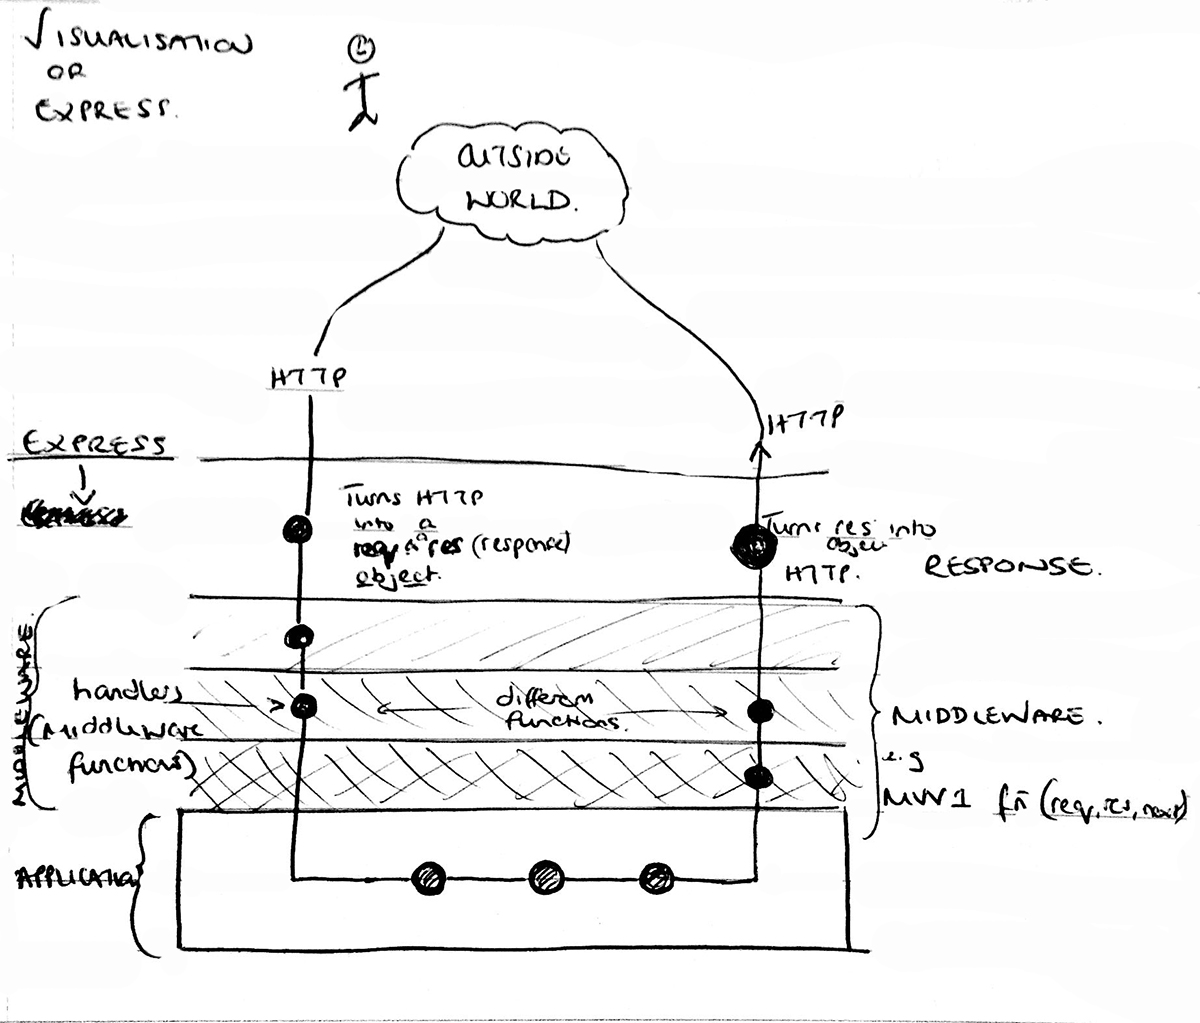 VISUALISATION
OF
EXPRESS.
OUTSIDE
WORLD.
HTTP
HTTP
EXPRESS
Turns HTTP
into a
req & res (response)
object.
Turns res into
object
HTTP.
RESPONSE.
MIDDLEWARE.
handlers
(middleware
functions)
different
functions.
MIDDLEWARE.
e.g
MW1 fn (req, res, next)
APPLICATION